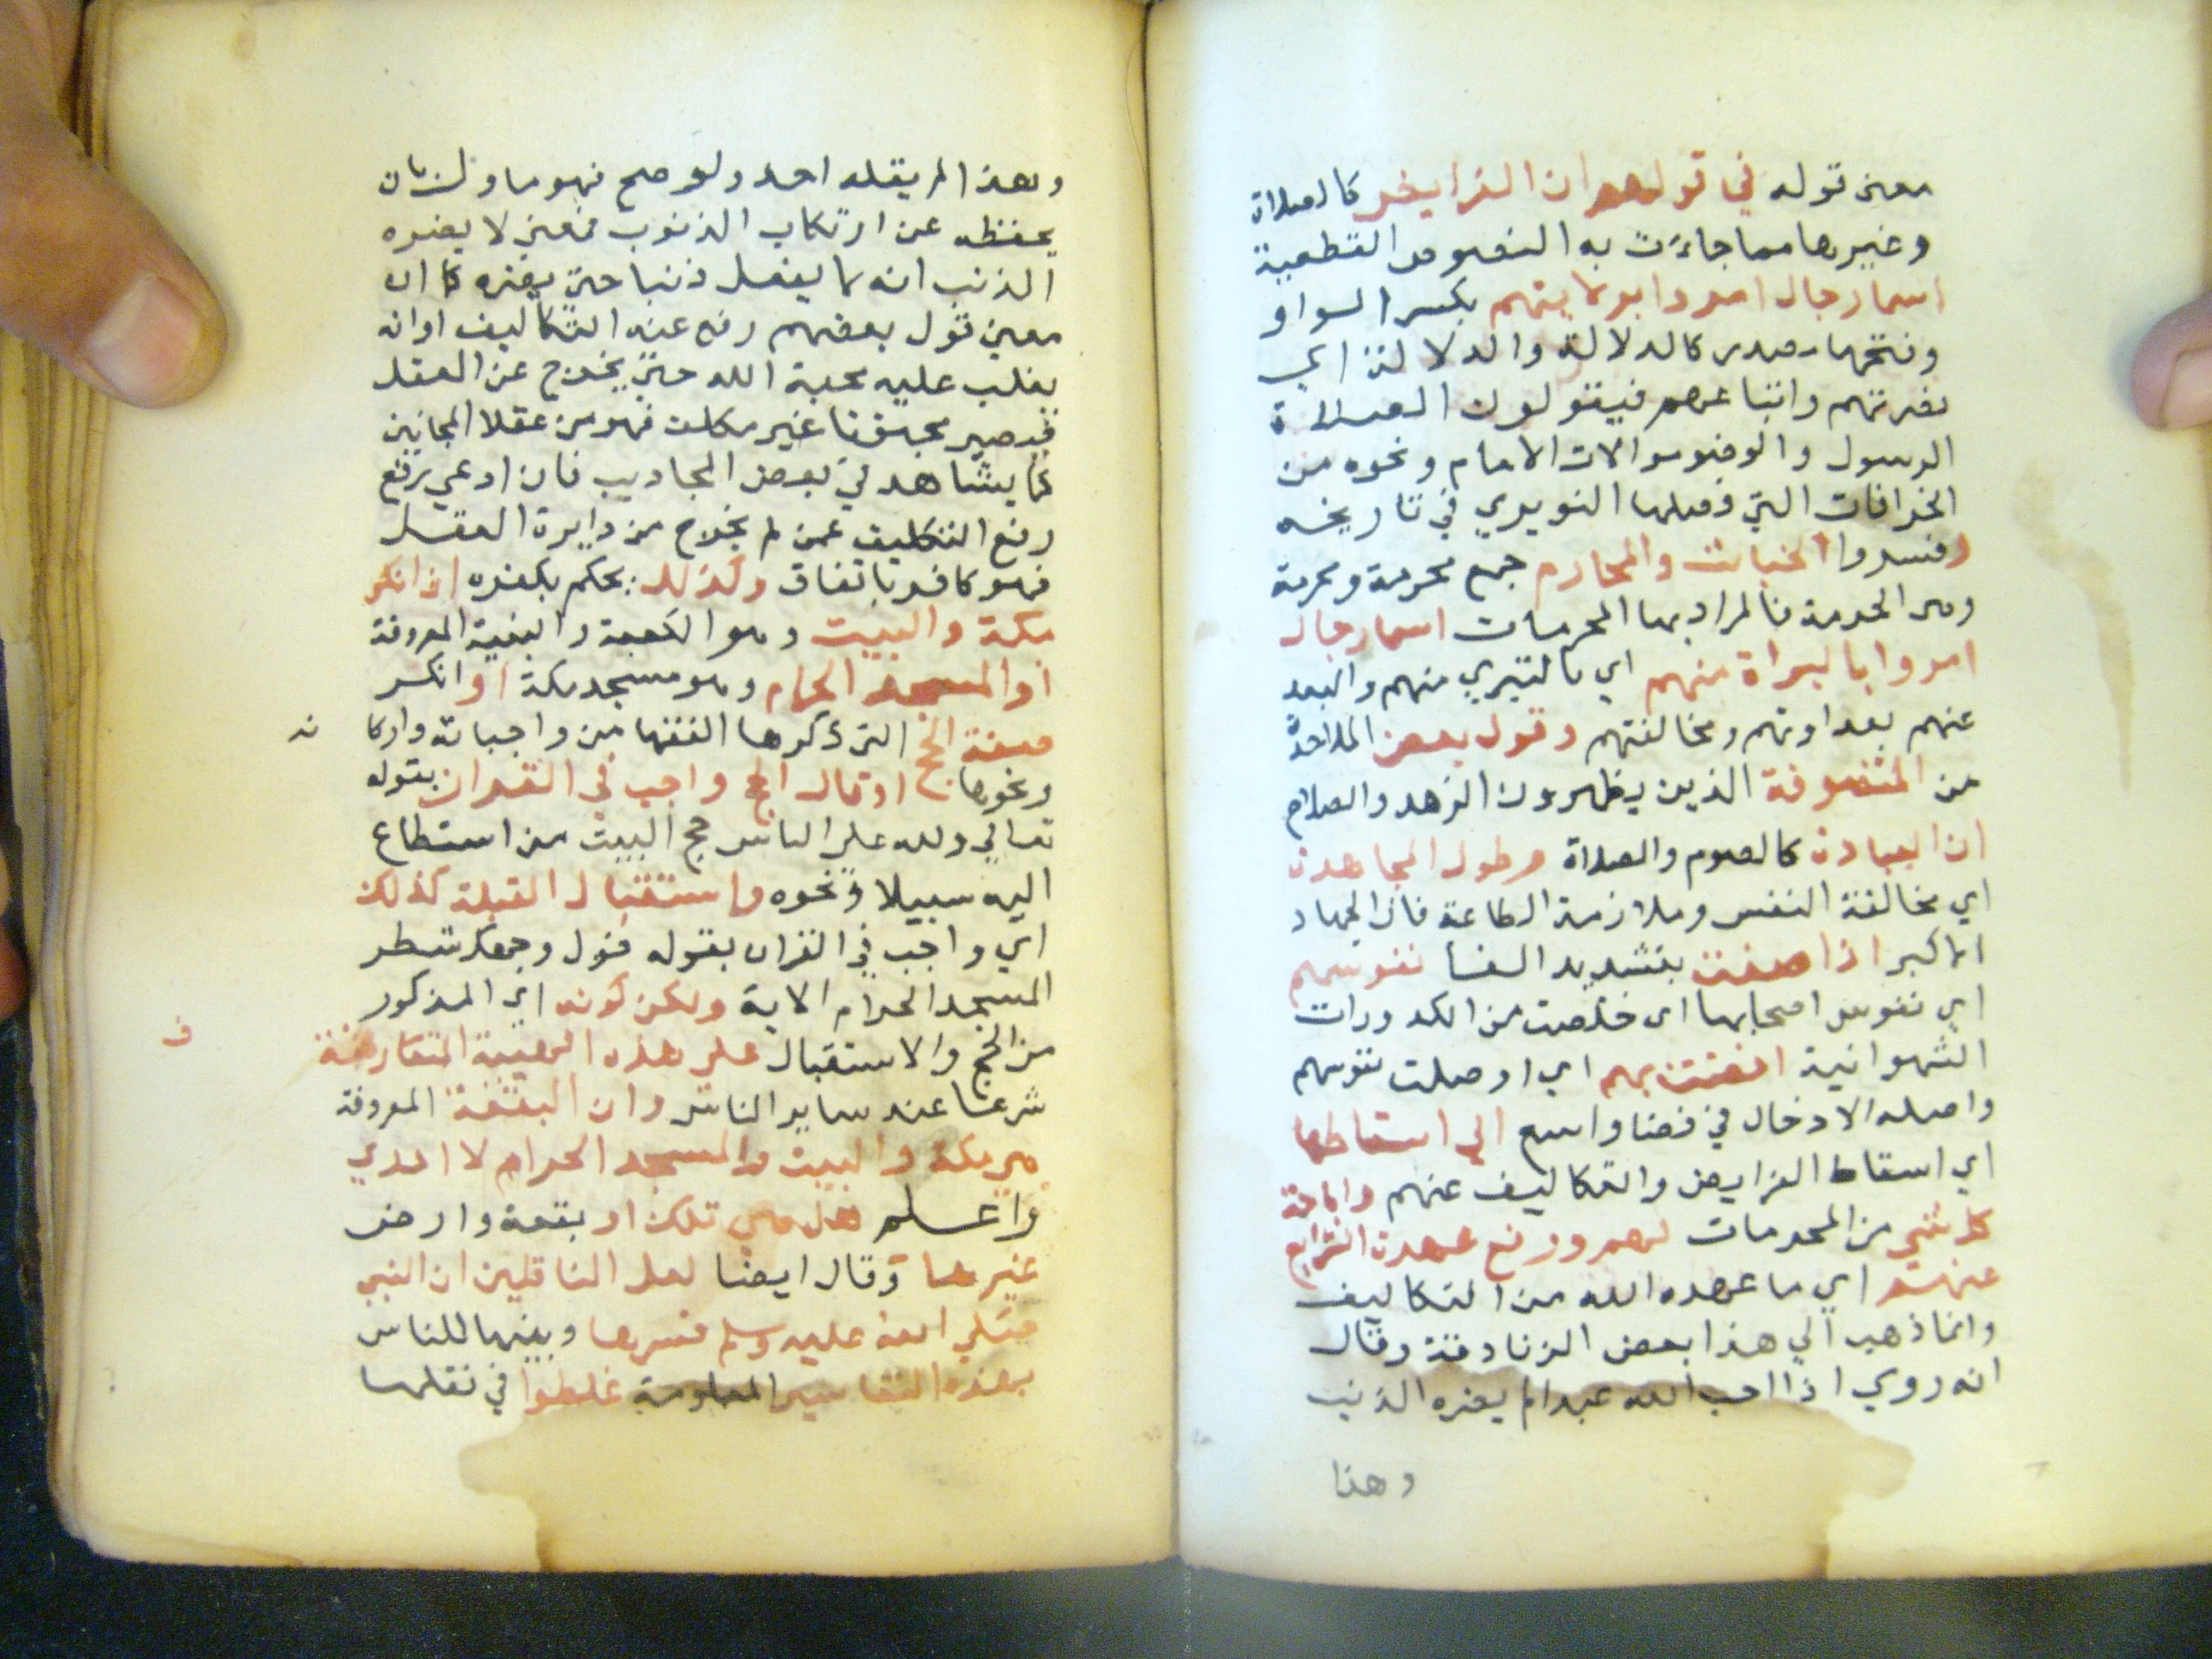 معنى قوله في قولهم ان الفرايض كالصلاة
وغيرها مما جاءت به النصوص القطعية
اسما رجال امروا بولايتهم بكسر الواو
وفتحها مصدر كالدلالة والدلالة اي
نصرتهم واتباعهم فيقولون الصلاة
الرسول والوضو موالات الامام ونحوه من
الخرافات التي فصلها النويري في تاريخه
وفسروا الخبائث والمحارم جمع محرمة ومحرمة
وهي الحرمة فالمراد بها المحرمات اسما رجال
امروا بالبراة منهم اي بالتبري منهم والبعد
عنهم بعداوتهم ومخالفتهم وقول بعض الملاحدة
من المتصوفة الذين يظهرون الزهد والصلاح
ان العبادة كالصوم والصلاة وطول المجاهدة
اي مخالفة النفس وملازمة الطاعة فانه الجهاد
الاكبر اذا صفت بتشديد الفا نفوسهم
اي نفوس اصحابها اي خلصت من الكدورات
الشهوانية افضت بهم اي اوصلت نفوسهم
واصله الادخال في فضا واسع الي اسقاطها
اي اسقاط الفرايض والتكاليف عنهم واباحة
كل شي من المحرمات لهم ورفع عهدة الشرايع
عنهم اي ما عهده الله من التكاليف
وانما ذهب الي هذا بعض الزنادقة وقال
انه روي اذا احب الله عبدا لم يضره الذنب
وهذا
وهذا لم يقله احد ولو صح فهو ماول بان
يحفظه عن ارتكاب الذنوب فمعنى لا يضره
الذنب انه لا يفعل ذنبا حتى يضره كما ان
معنى قول بعضهم رفع عنه التكاليف اوانه
يغلب عليه محبة الله حتى يخرج عن العقل
فيصير مجنونا غير مكلف فهو من عقلا المجانين
كما يشاهد في بعض المجاذيب فان ادعي برفع
رفع التكليف عمن لم يخرج من دايرة العقل
فهو كافر باتفاق وكذلك يحكم بكفره اذا انكر
مكة والبيت وهو الكعبة والبنية المعروفة
او المسجد الحرام وهو مسجد مكة او انكر
صفة الحج التي ذكرها الفقها من واجباته واركا
نه
ونحوها او قال الحج واجب في القران بقوله
تعالي ولله على الناس حج البيت من استطاع
اليه سبيلا ونحوه واستقبال القبلة كذلك
اي واجب في القران بقوله فول وجهك شطر
المسجد الحرام الاية ولكن كونه اي المذكور
من الحج والاستقبال على هذه الهيية المتعارفة
ف
شرعا عند ساير الناس وان البقعة المعروفة
هي مكة والبيت والمسجد الحرام لا ادري
واعلم هل هي تلك او بقعة وارض
غيرها وقال ايضا لعل الناقلين ان النبي
صلى الله عليه وسلم فسرها وبينها للناس
بهذه التفاسير المعلومة غلطوا في نقلها